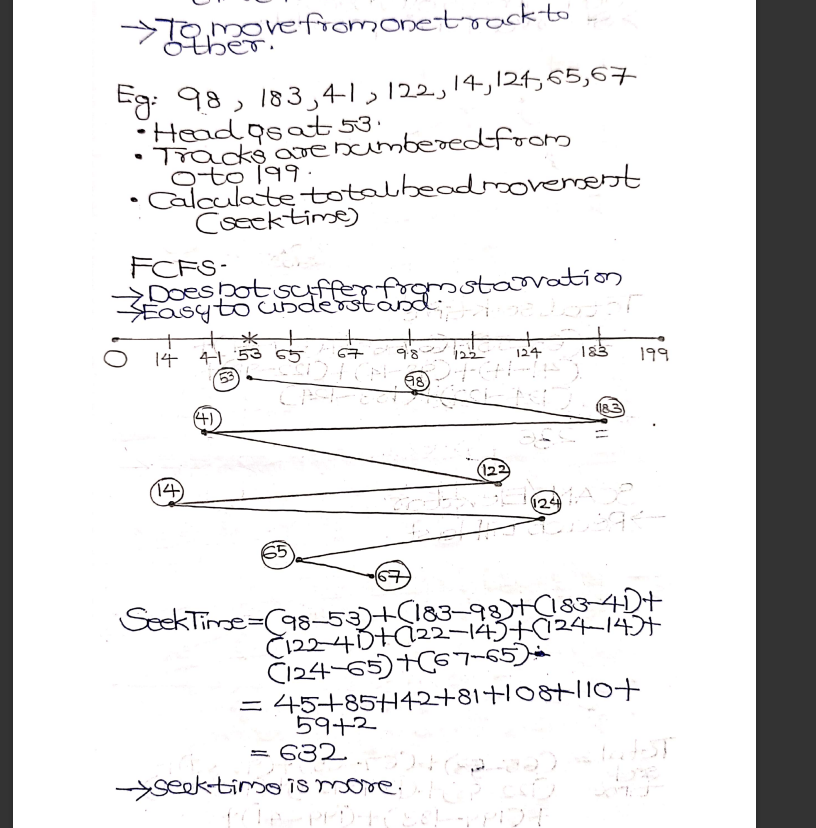 →To move from one track to
other.
Eg: 98, 183, 41, 122, 14, 124, 65, 67
• Head is at 53.
• Tracks are numbered from
0 to 199.
• Calculate total head movement
(seek time)
FCFS-
→Does not suffer from starvation
→Easy to understand.
0 14 41 53 65 67 98 122 124 183 199
53 98
183
41
122
14
124
65
67
Seek Time=(98-53)+(183-98)+(183-41)+
(122-41)+(122-14)+(124-14)+
(124-65)+(67-65)
= 45+85+142+81+108+110+
59+2
= 632
→seek time is more.